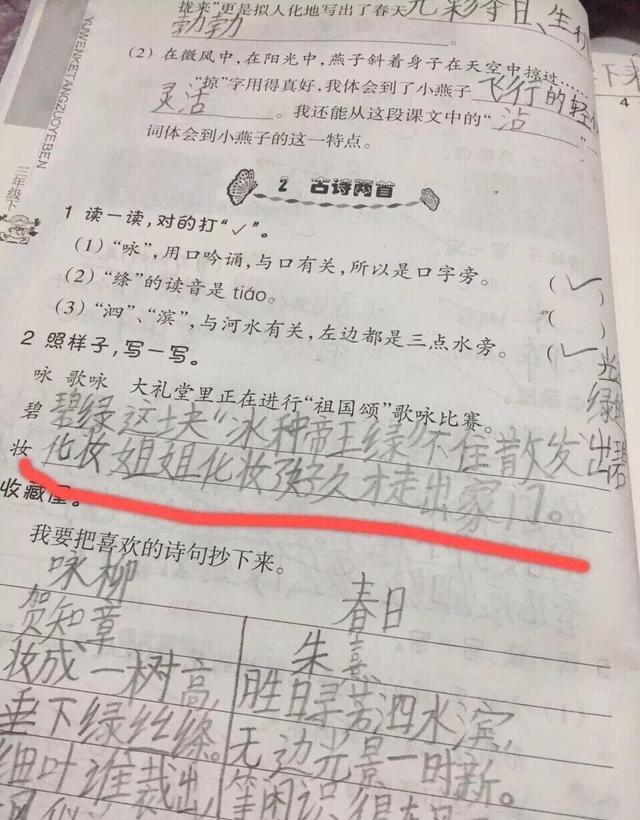 拢来”更是拟人化地写出了春天光彩夺目、生机
勃勃。
(2) 在微风中，在阳光中，燕子斜着身子在天空中掠过……
“掠”字用得真好，我体会到了小燕子飞行的轻快
灵活。我还能从这段课文中的“沾”
词体会到小燕子的这一特点。
YUWENKETANGZUOYEBEN
三年级下
下来
4
2 古诗两首
1 读一读，对的打“✓”。
(1) “咏”，用口吟诵，与口有关，所以是口字旁。 (✓)
(2) “绦”的读音是 tiáo。 ( )
(3) “泗”、“滨”，与河水有关，左边都是三点水旁。 (✓)
2 照样子，写一写。
咏 歌咏 大礼堂里正在进行“祖国颂”歌咏比赛。
碧 碧绿 这块“冰种帝王绿”不住散发出碧绿的光
妆 化妆 姐姐化妆了好久才走出家门。
收藏屋。
我要把喜欢的诗句抄下来。
咏柳
贺知章
妆成一树高
垂下绿丝绦。
细叶谁裁出
春日
朱熹
胜日寻芳泗水滨，
无边光景一时新。
等闲识得东风